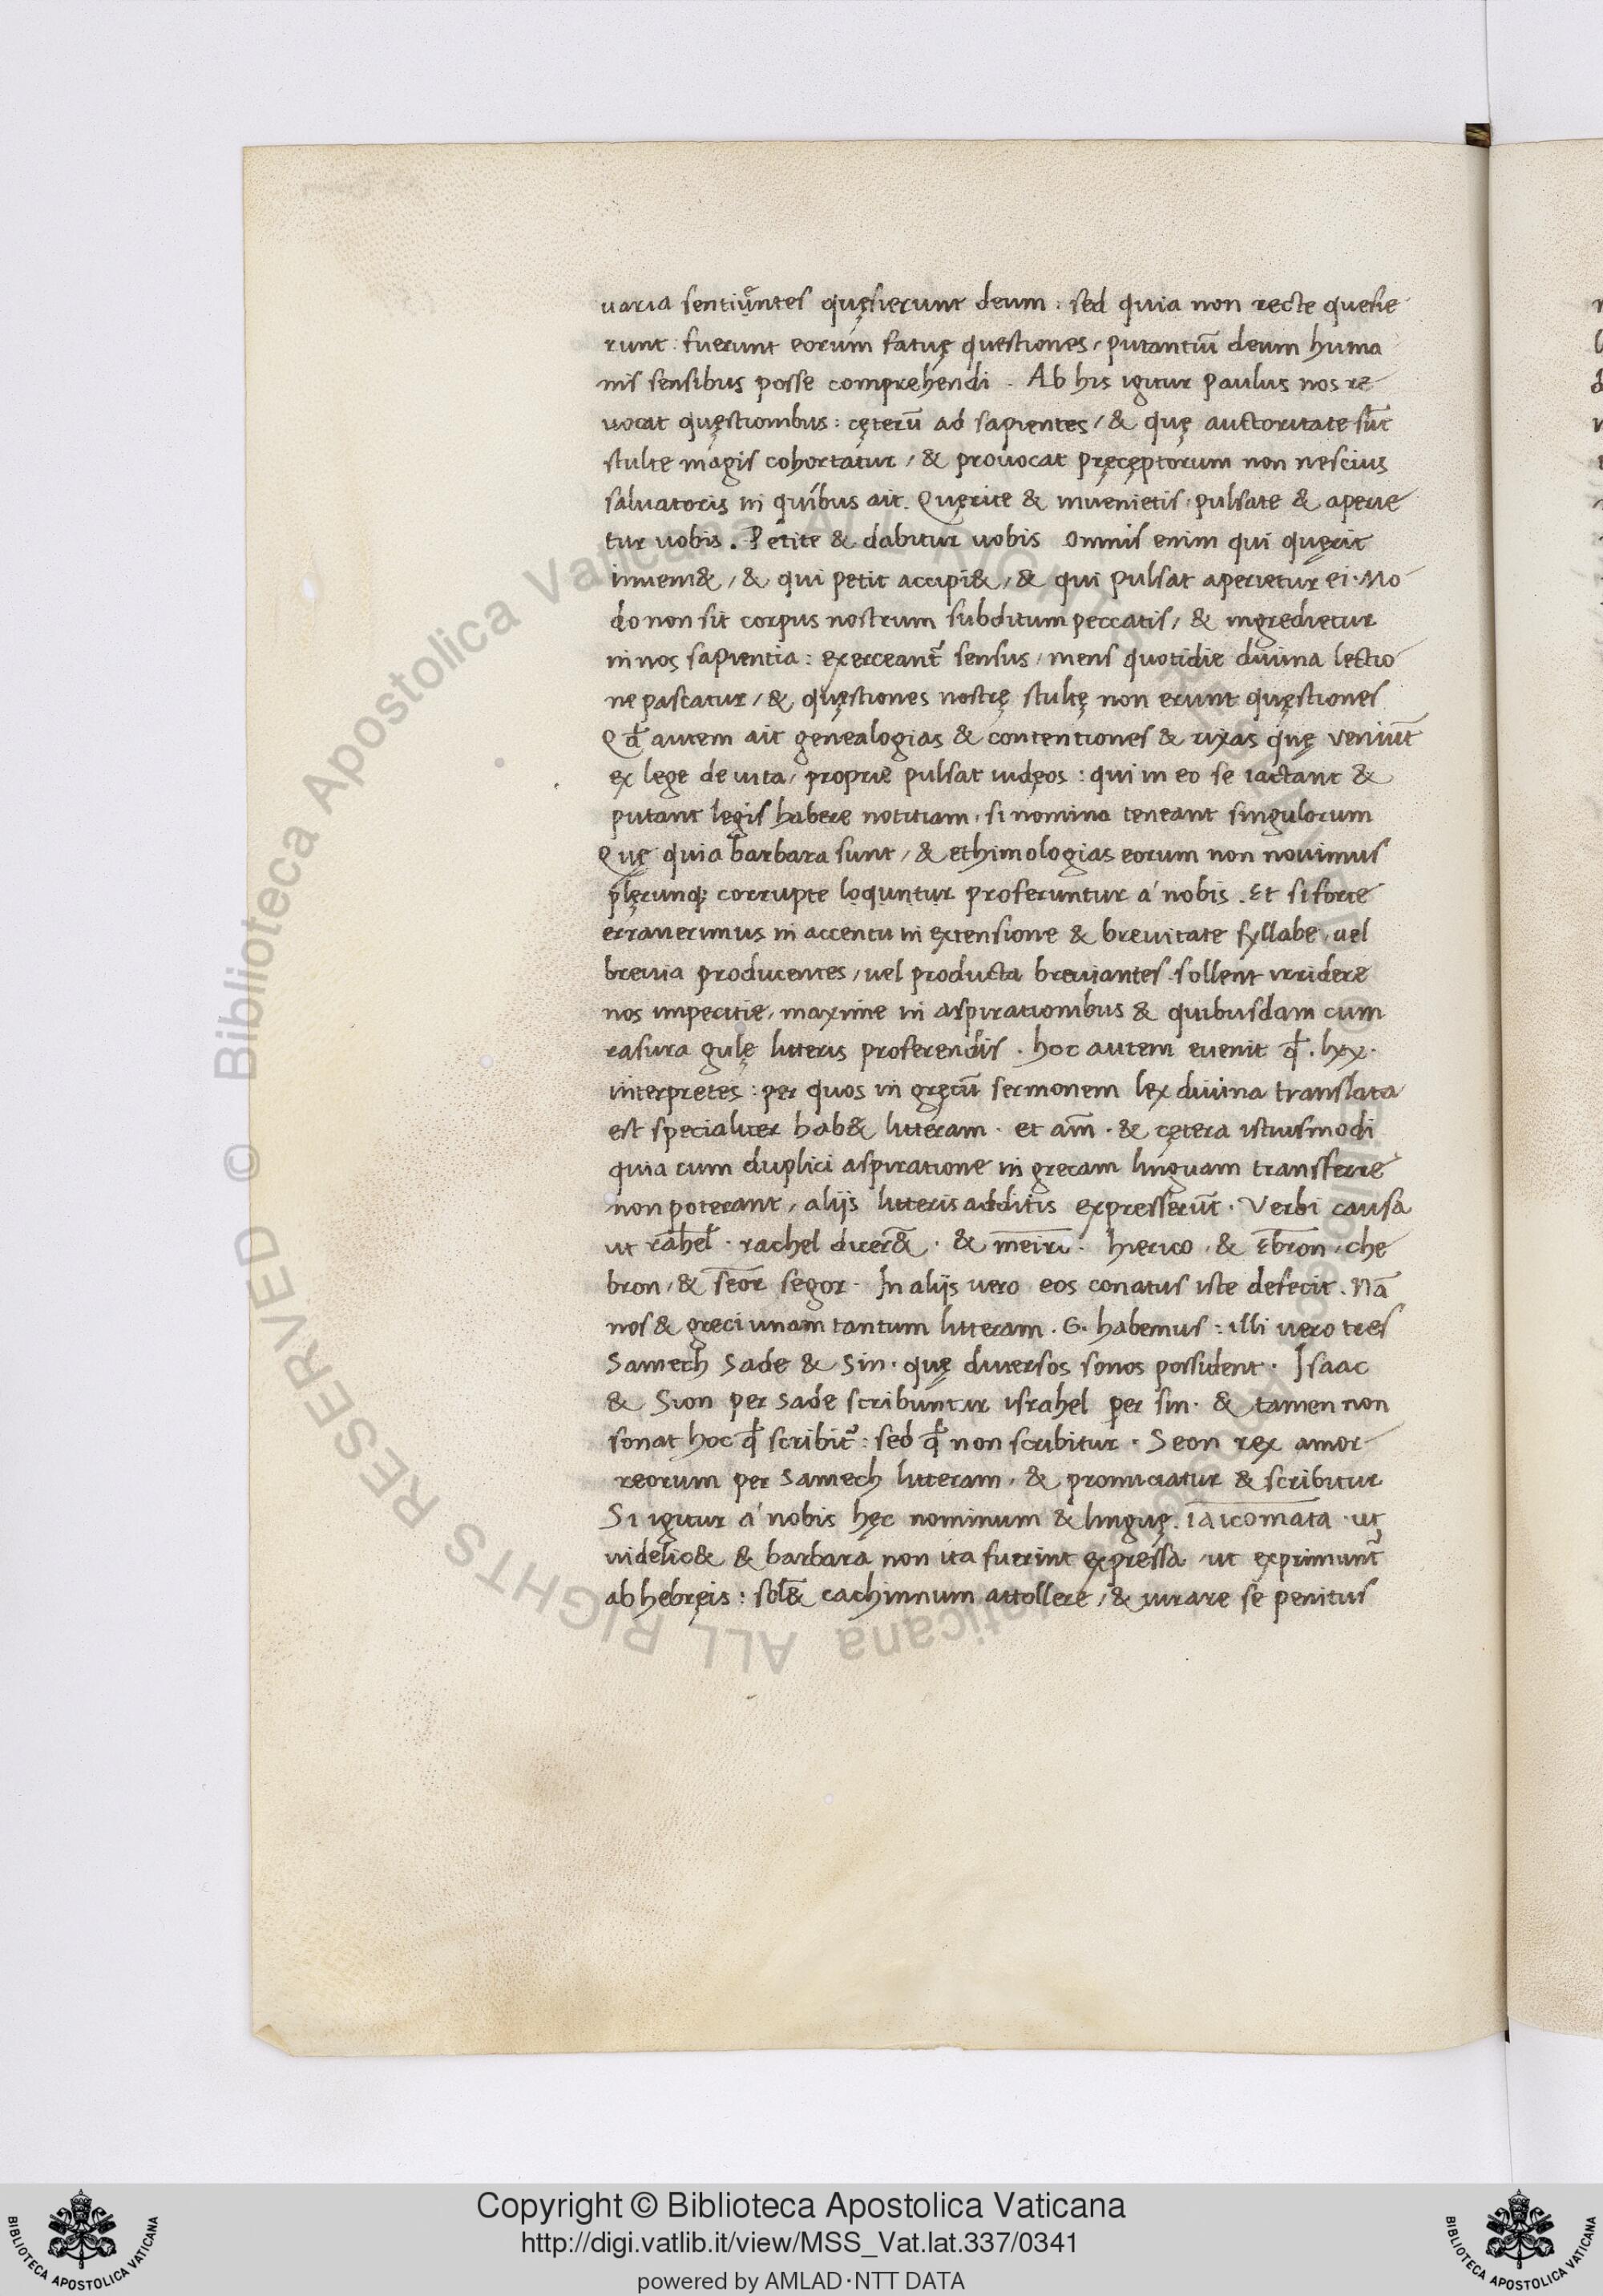 varia sentiuntes quęsierunt deum : sed quia non recte quesie
runt : fuerunt eorum fatuę questiones / putantiũ deum huma
nis sensibus posse comprehendi . Ab his igitur paulus nos re
uocat quęstionibus : cęterũ ad sapientes / & quę auctoritate sũt
stulte magis cohortatur / & prouocat pręcęptorum non nescius
saluatoris in quibus ait . Quęrite & inuenietis · pulsate & aperie
tur uobis . Petite & dabitur uobis omnis enim qui quęrit
inueni& / & qui petit accipi& / & qui pulsat aperietur ei · Mo
do non sit corpus nostrum subditum peccatis / & ingredietur
in nos sapientia : exerceant᷑ sensus / mens quotidie diuina lectio
ne pascatur / & quęstiones nostrę stultę non erunt quęstiones
Qđ autem ait genealogias & contentiones & rixas quę veniũt
ex lege de uita / proprie pulsat iudęos : qui in eo se iactant &
putant legis habere notitiam · si nomina teneant singulorum
Quę quia barbara sunt / & ethimologias eorum non nouimus
plęrunq; corrupte loquntur proferuntur á nobis . Et si forte
errauerimus in accentu in extensione & breuitate syllabe · uel
breuia producentes / uel producta breuiantes · sollent irridere
nos imperitie / maxime in aspirationibus & quibusdam cum
rasura gulę litteris proferendis . hoc autem euenit ꝙ . lxx .
interpretes : per quos in gręcũ sermonem lex diuina translata
est specialiter hab& litteram · et am̃ · & cętera istiusmodi
quia cum duplici aspiratione in grecam linguam transferre
non poterant / alijs litteris additis expresserũt · Verbi causa
ut rahel · rachel dicer& · & · hierico · & Ebron / che
bron / & seor segor · In alijs uero eos conatus iste defecit . Nã
nos & greci unam tantum litteram . G . habemus : illi uero tres
Samech Sade & Sin · quę diuersos sonos possident · Isaac
& Sion per Sade scribuntur israhel per sin · & tamen non
sonat hoc ꝙ scribit᷑ : sed ꝙ non scribitur · Seon rex amor
reorum per Samech litteram / & pronuciatur & scribitur
Si igitur á nobis hęc nominum & linguę . iaicomata · ut
videlic& & barbara non ita fuerint expressa / ut exprimunt᷑
ab hebręis : sol& cachinnum attollere / & iurare se penitus
Copyright © Biblioteca Apostolica Vaticana
http://digi.vatlib.it/view/MSS_Vat.lat.337/0341
powered by AMLAD·NTT DATA
BIBLIOTECA APOSTOLICA VATICANA
BIBLIOTECA APOSTOLICA VATICANA
© Biblioteca Apostolica Vaticana ALL RIGHTS RESERVED